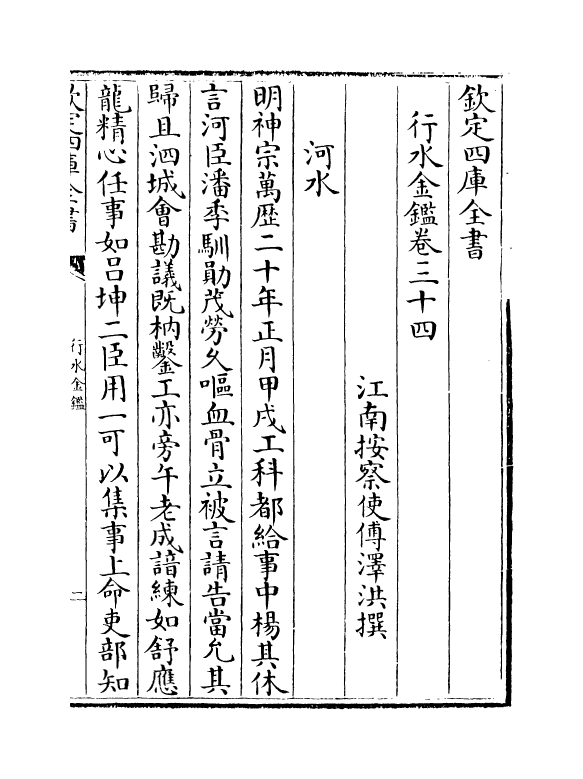 欽定四庫全書
行水金鑑卷三十四
江南按察使傅澤洪撰
河水
明神宗萬歷二十年正月甲戌工科都給事中楊其休
言河臣潘季馴勛茂勞久嘔血骨立被言請告當允其
歸且泗城會勘議既枘鑿工亦旁午老成諳練如舒應
龍精心任事如呂坤二臣用一可以集事上命吏部知
欽定四庫全書
行水金鑑
二